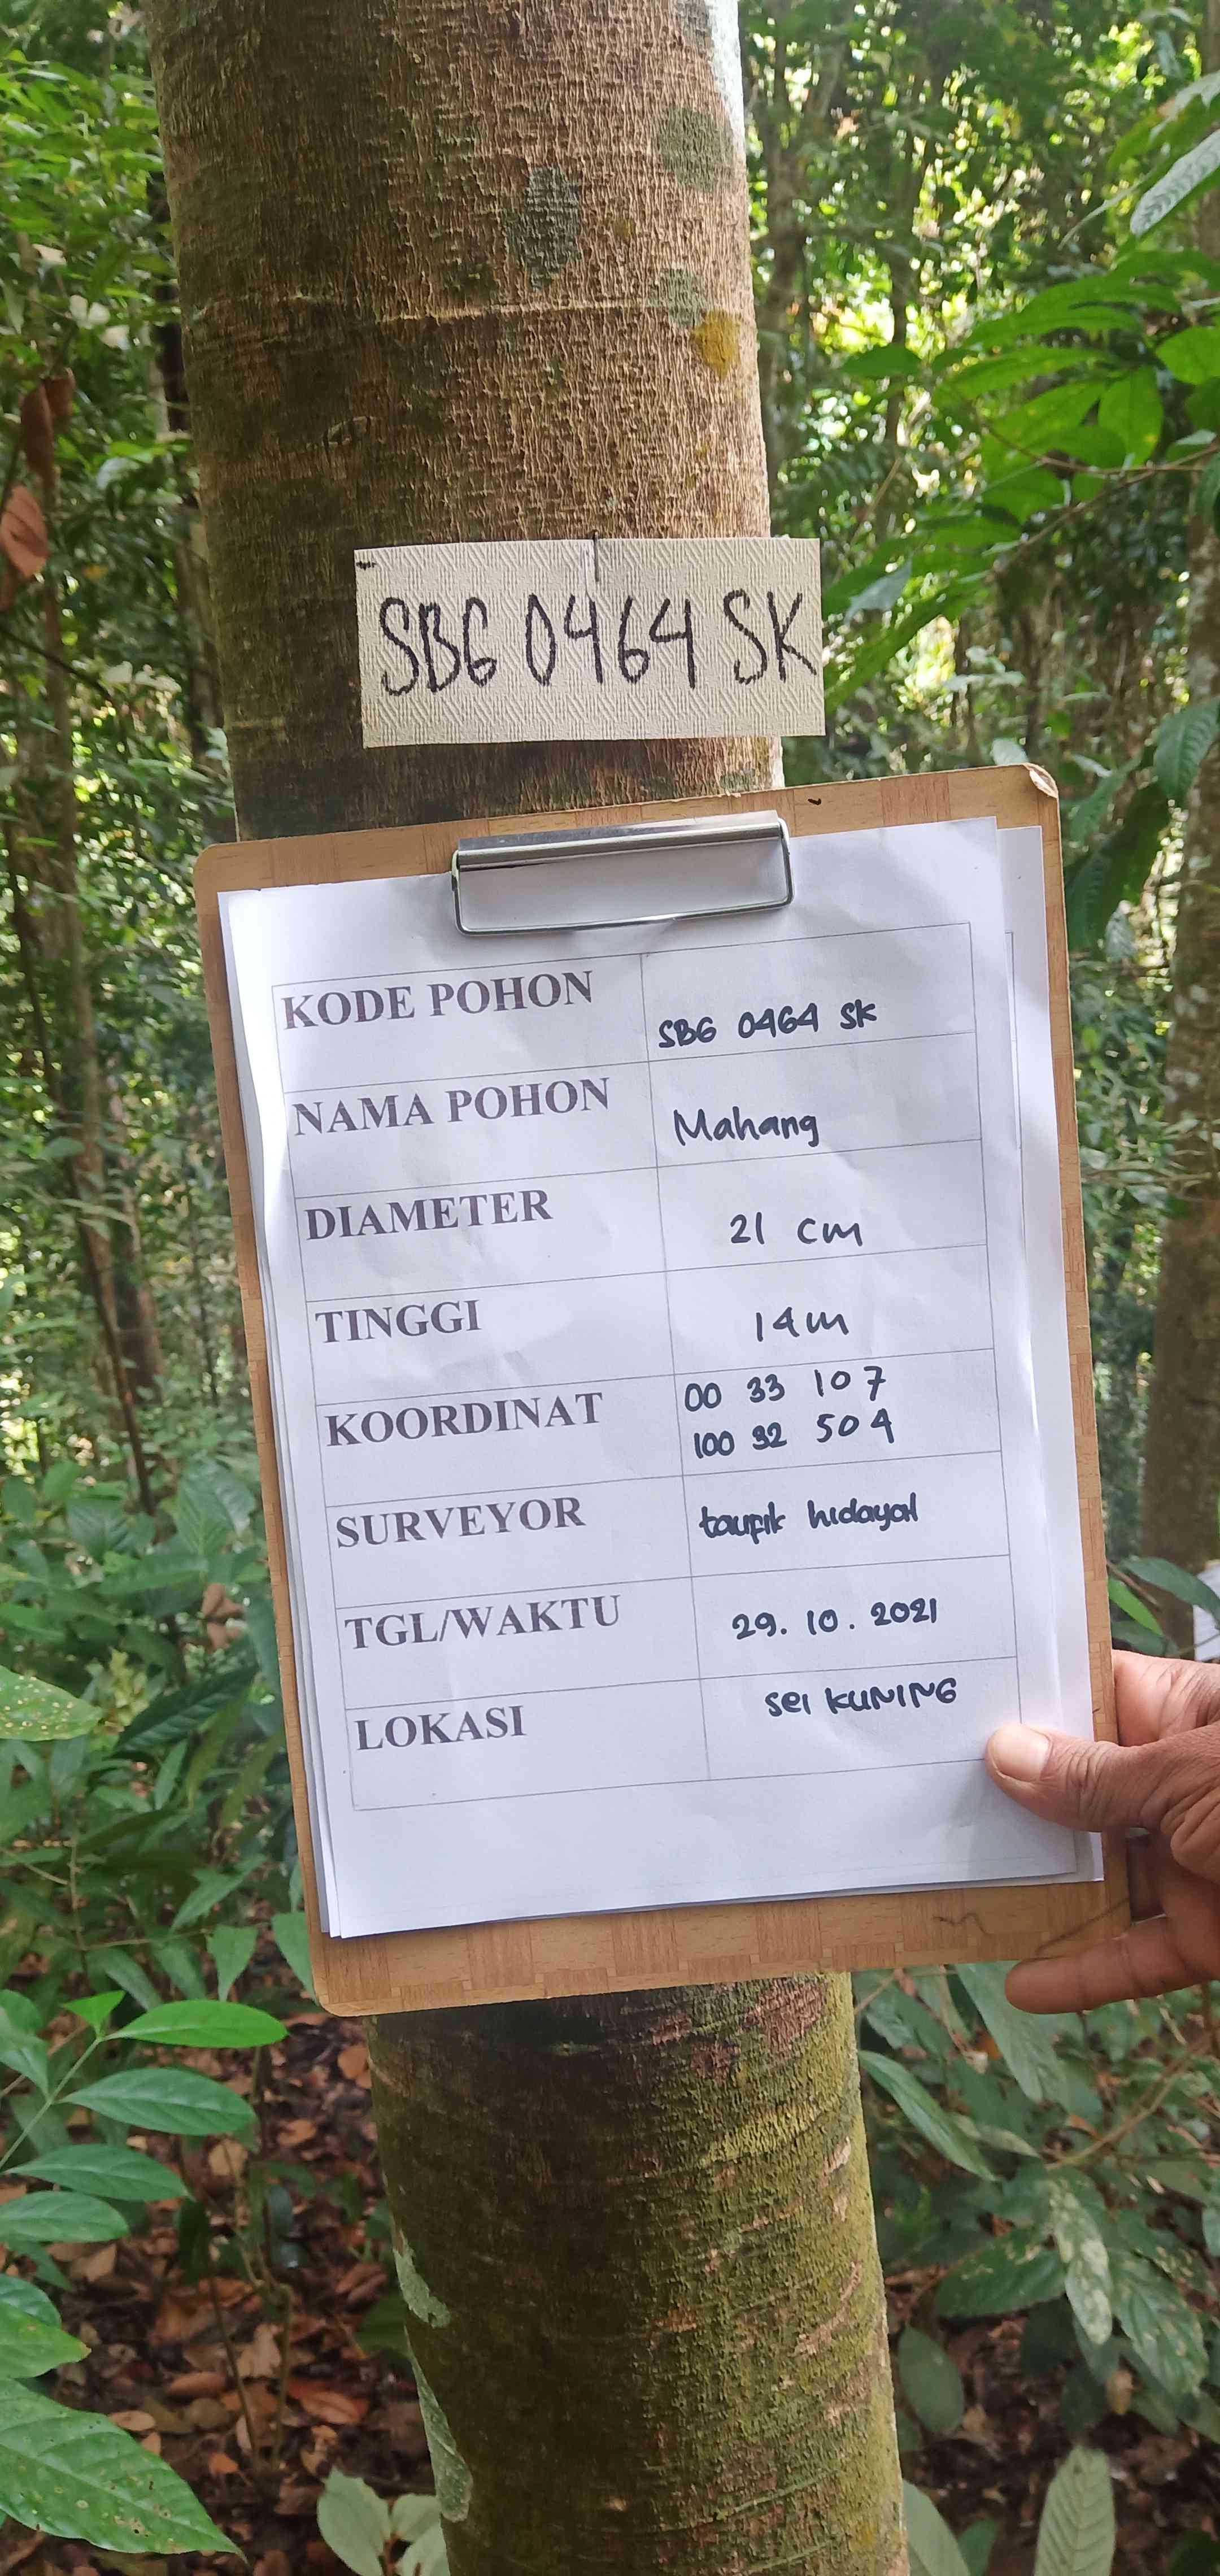 SBG 0464 SK
KODE POHON SBG 0464 SK
NAMA POHON Mahang
DIAMETER 21 cm
TINGGI 14m
KOORDINAT 00 33 107
100 32 504
SURVEYOR taupik hidayat
TGL/WAKTU 29. 10. 2021
LOKASI sei KUNING